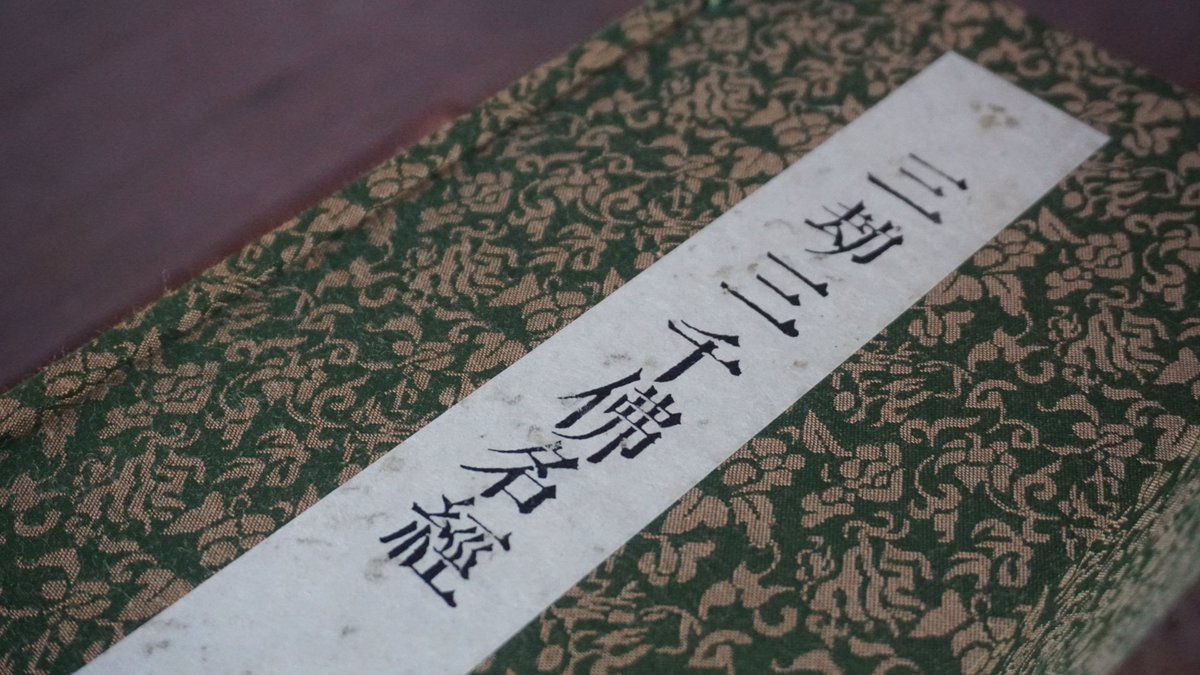 三劫三千佛名經